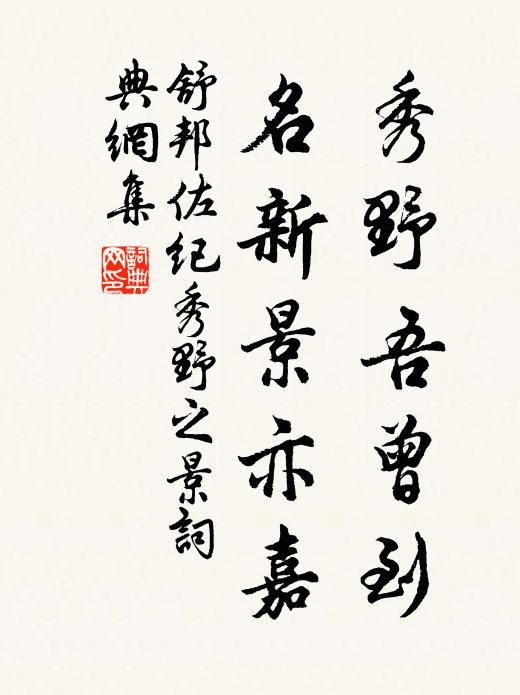 秀野吾曾到
名新景亦嘉
舒邦佐紀秀野之景詞
典網集
詞典
网印